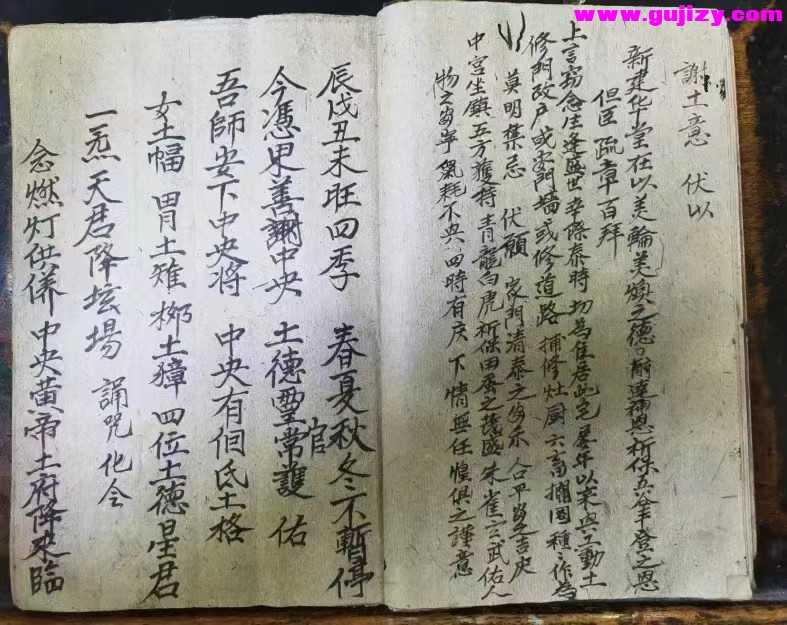 www.gujizy.com
謝土意 伏以
新建华堂在以美輪美煥之德 酧達 恩祈保五谷丰登之恩
但臣疏章百拜
上言窃念生逢盛世幸際泰時切為住居此宅 年以來兴工動土
修門改户或安門墻或修道路捕修灶厨六畜 種〻作為
莫明集忌 伏願 家門清泰之 合 吉庆
中宫坐鎮五方獲持青龍白虎祈保田蚕之茂盛朱雀玄武佑人
物之安寧氣耗不兴四時有庆下情無任惶俱之謹意
辰戌丑未旺四季 春夏秋冬不暫停
今憑果善謝中央 土德星官常護佑
吾師安下中央将 中央有個氐土格
女土蝠 胃土雉 柳土獐 四位土德星君
一炁天君降坛場 誦咒化令
念燃灯供养 中央黄帝土府降來臨